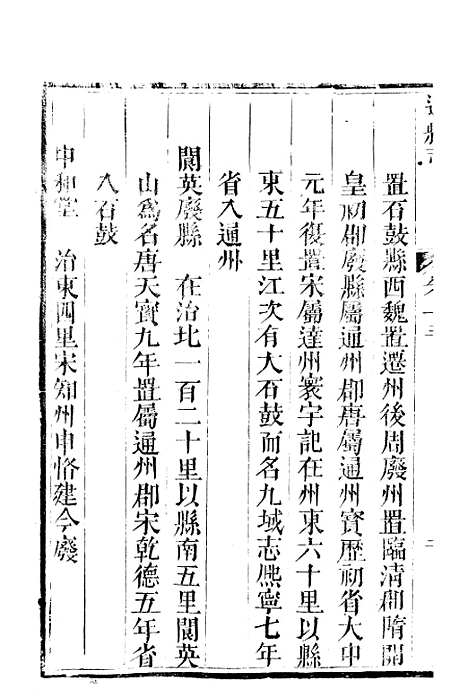 置石鼓縣西魏置遷州後周廢州置臨清郡隋開
皇初郡廢縣屬通州郡唐屬通州寶歷初省大中
元年復置宋屬達州寰宇記在州東六十里以縣
東五十里江次有大石鼓而名九域志熙寧七年
省入通州
閬英廢縣 在治北一百二十里以縣南五里閬英
山爲名唐天寶九年置屬通州郡宋乾德五年省
入石鼓
中和堂 治東四里宋知州申恪建今廢